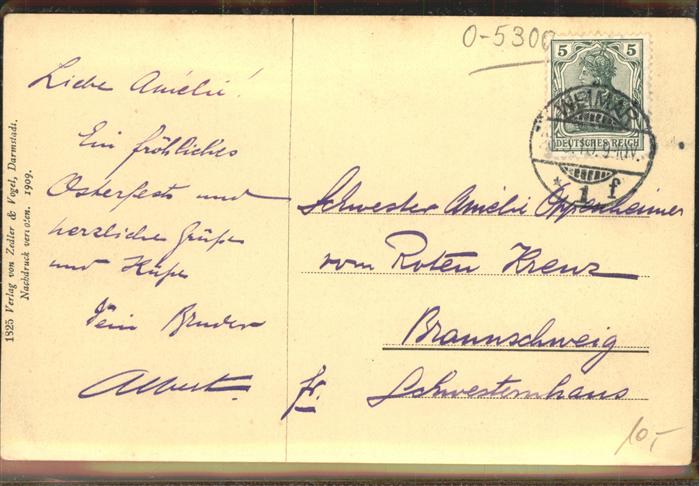 O-5300
Liebe Amélie!
Ein fröhliches
Osterfest und
herzliche Grüße
und Küße
Dein Bruder
Albert.
1825 Verlag von Zedler & Vogel, Darmstadt.
Nachdruck verboten. 1909.
5 5
DEUTSCHES REICH
WEIMAR
* 1 f
Schwester Amélie Oppenheimer
vom Roten Kreuz
Braunschweig
fr. Schwesternhaus
10,-